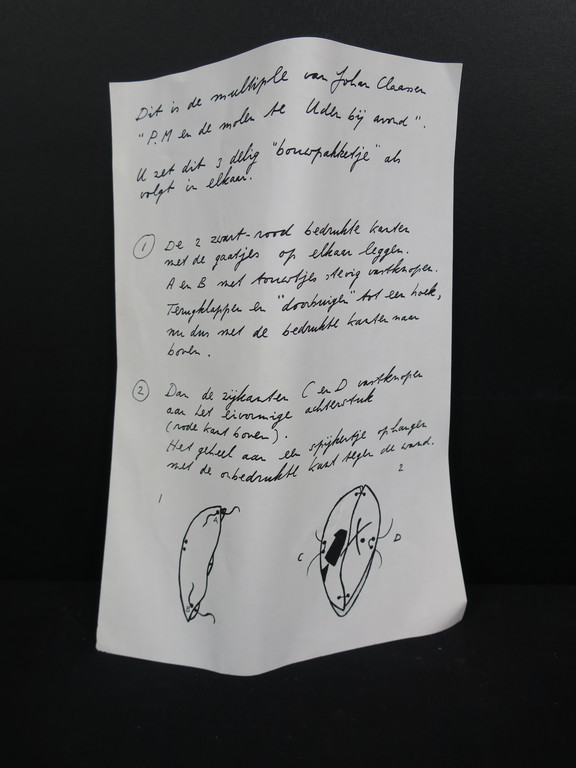 Dit is de multiple van Johan Claassen
"P.M en de molen te Uden bij avond".
U zet dit 3 delig "bouwpakketje" als
volgt in elkaar.
1 De 2 zwart-rood bedrukte kanten
met de gaatjes op elkaar leggen.
A en B met touwtjes stevig vastknopen.
Terugklappen en "doorbuigen" tot een hoek,
nu dus met de bedrukte kanten naar
boven.
2 Dan de zijkanten C en D vastknopen
aan het eivormige achterstuk
(rode kant boven).
Het geheel aan een spijkertje ophangen
met de onbedrukte kant tegen de wand.
1
2
A
B
C
D